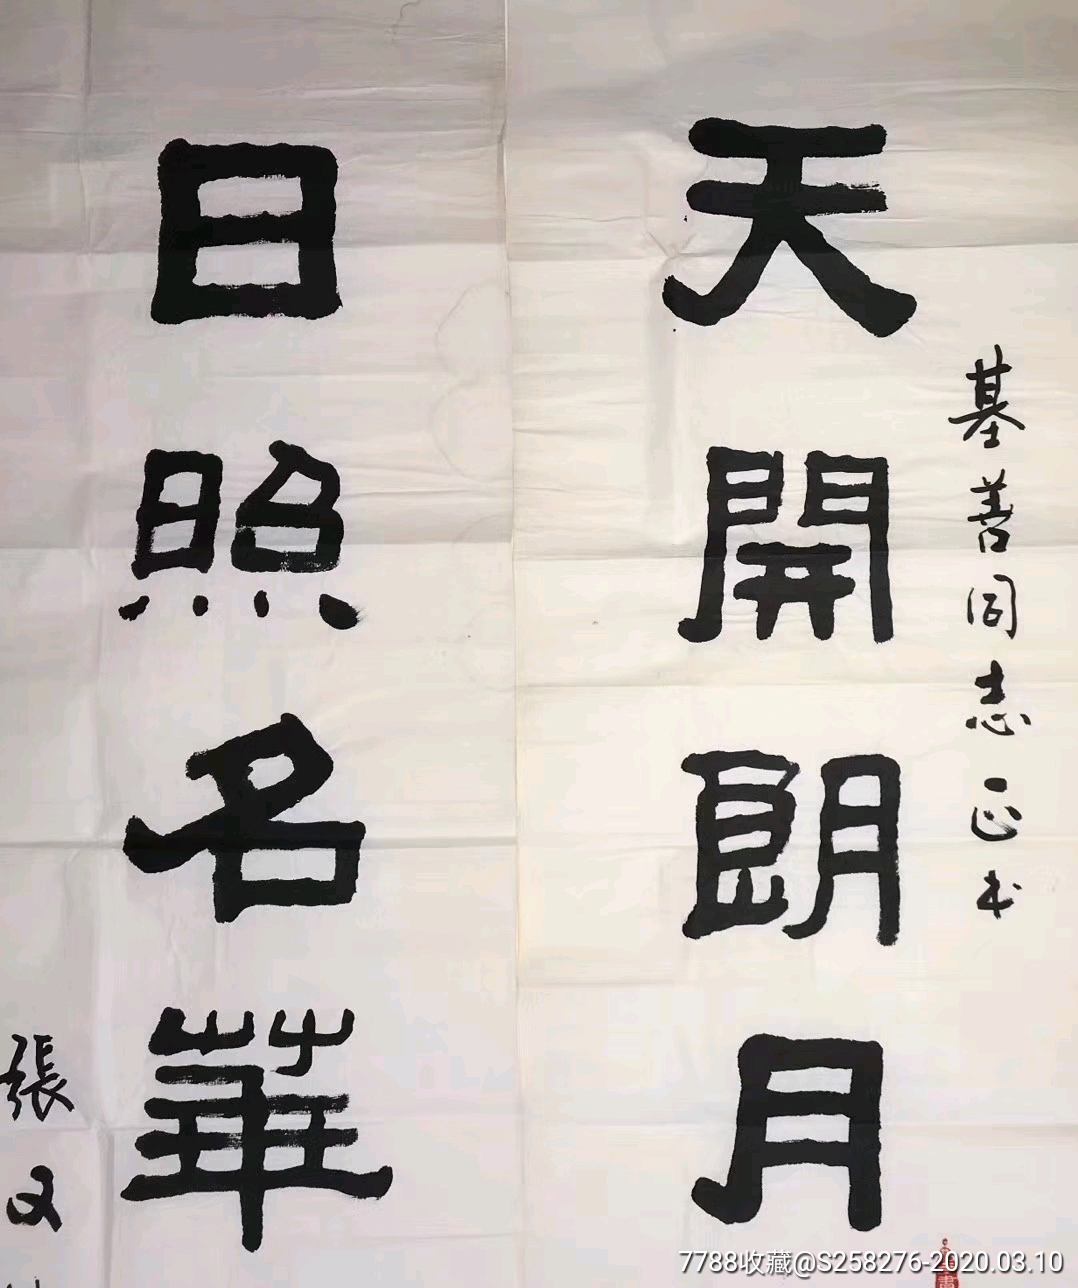 天開朗月
基善同志正书
日照名華
張又
7788收藏@S258276-2020.03.10